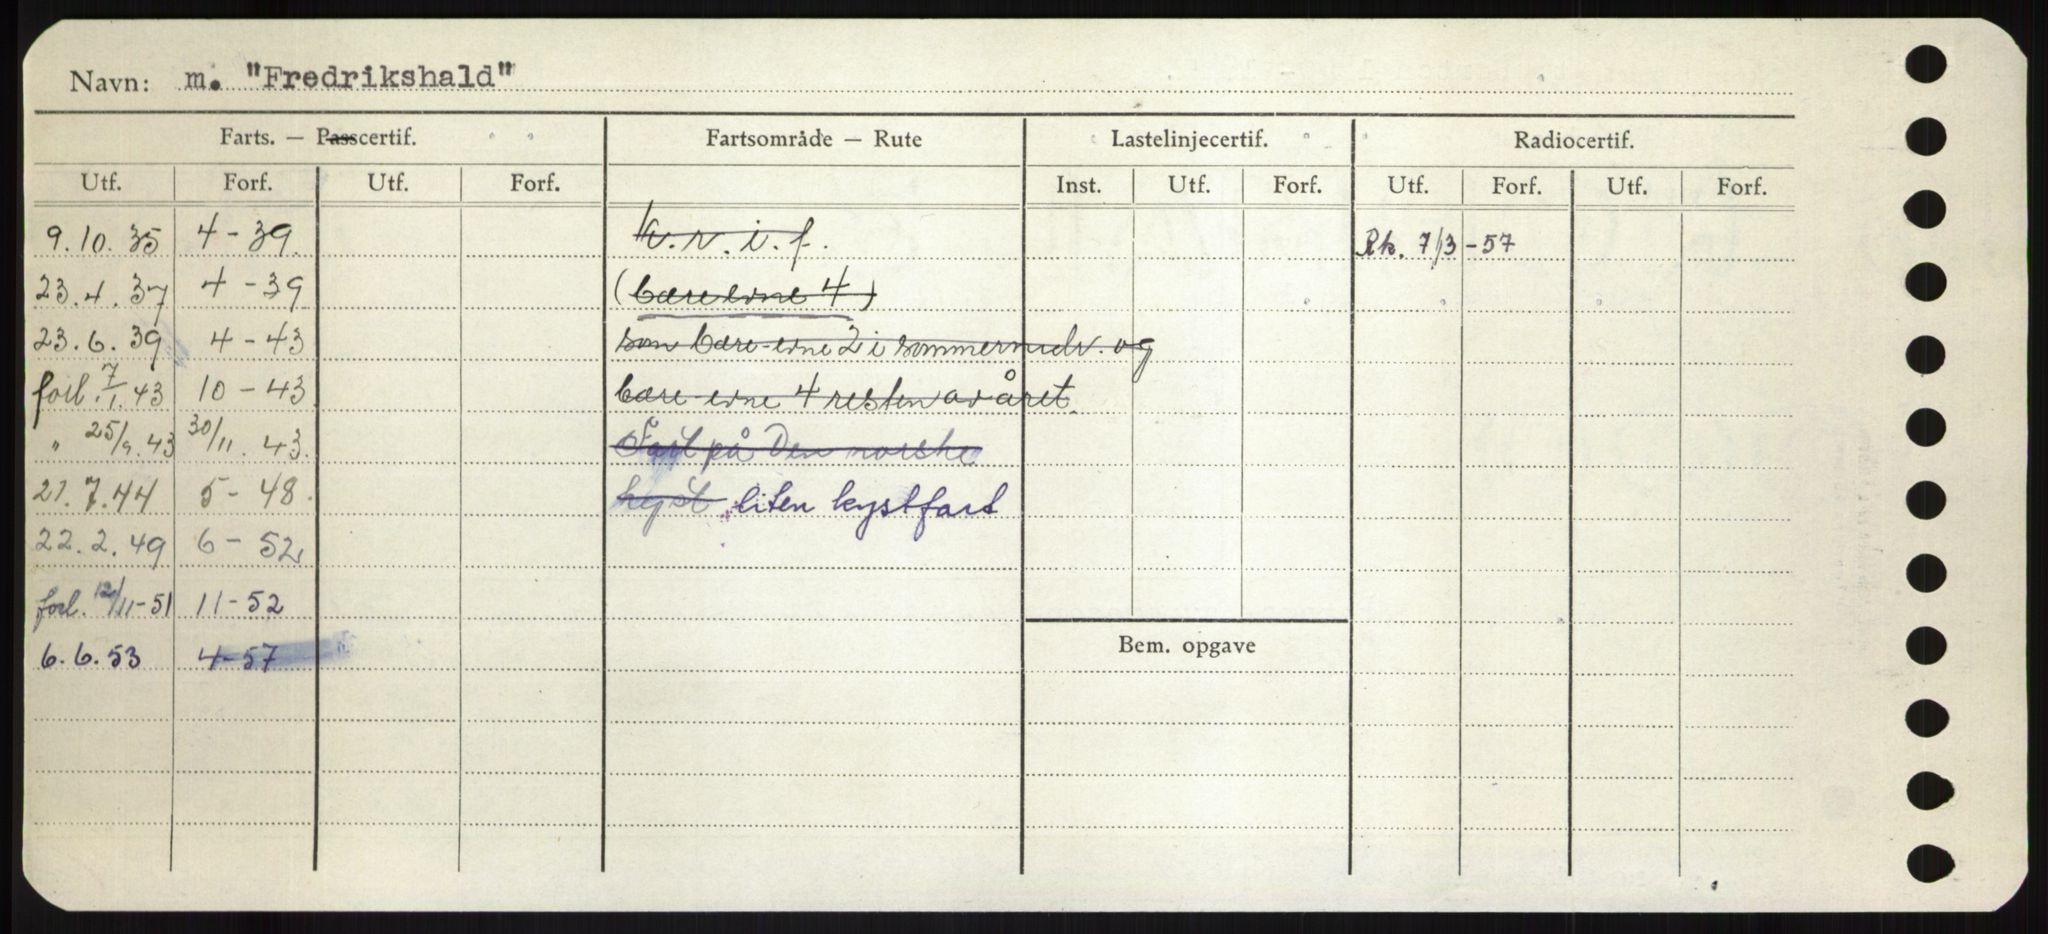 Navn: m. "Fredrikshald"
Farts. — Passcertif. Fartsområde — Rute Lastelinjecertif. Radiocertif.
Utf. Forf. Utf. Forf. Inst. Utf. Forf. Utf. Forf. Utf. Forf.
9.10.35 4-39. k.r.i.f. Rk. 7/3-57
23.4.37 4-39 (bæreevne 4)
23.6.39 4-43 som bære-evne 2 i sommermdr. og
forl. 7/1.43 10-43 bære-evne 4 resten av året.
" 25/9.43 30/11.43. Fart på Den norske
21.7.44 5-48. kyst liten kystfart
22.2.49 6-52
forl. 12/11-51 11-52
6.6.53 4-57
Bem. opgave